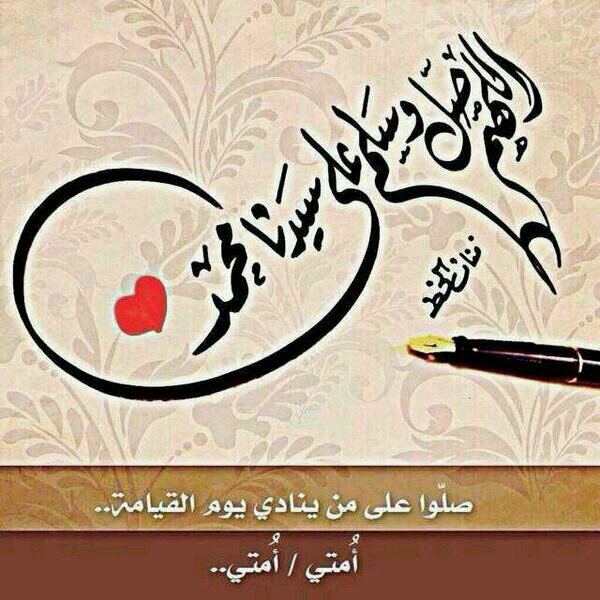 اللهم صل وسلم على سيدنا محمد
صلّوا على من ينادي يوم القيامة..
أُمتي / أُمتي..